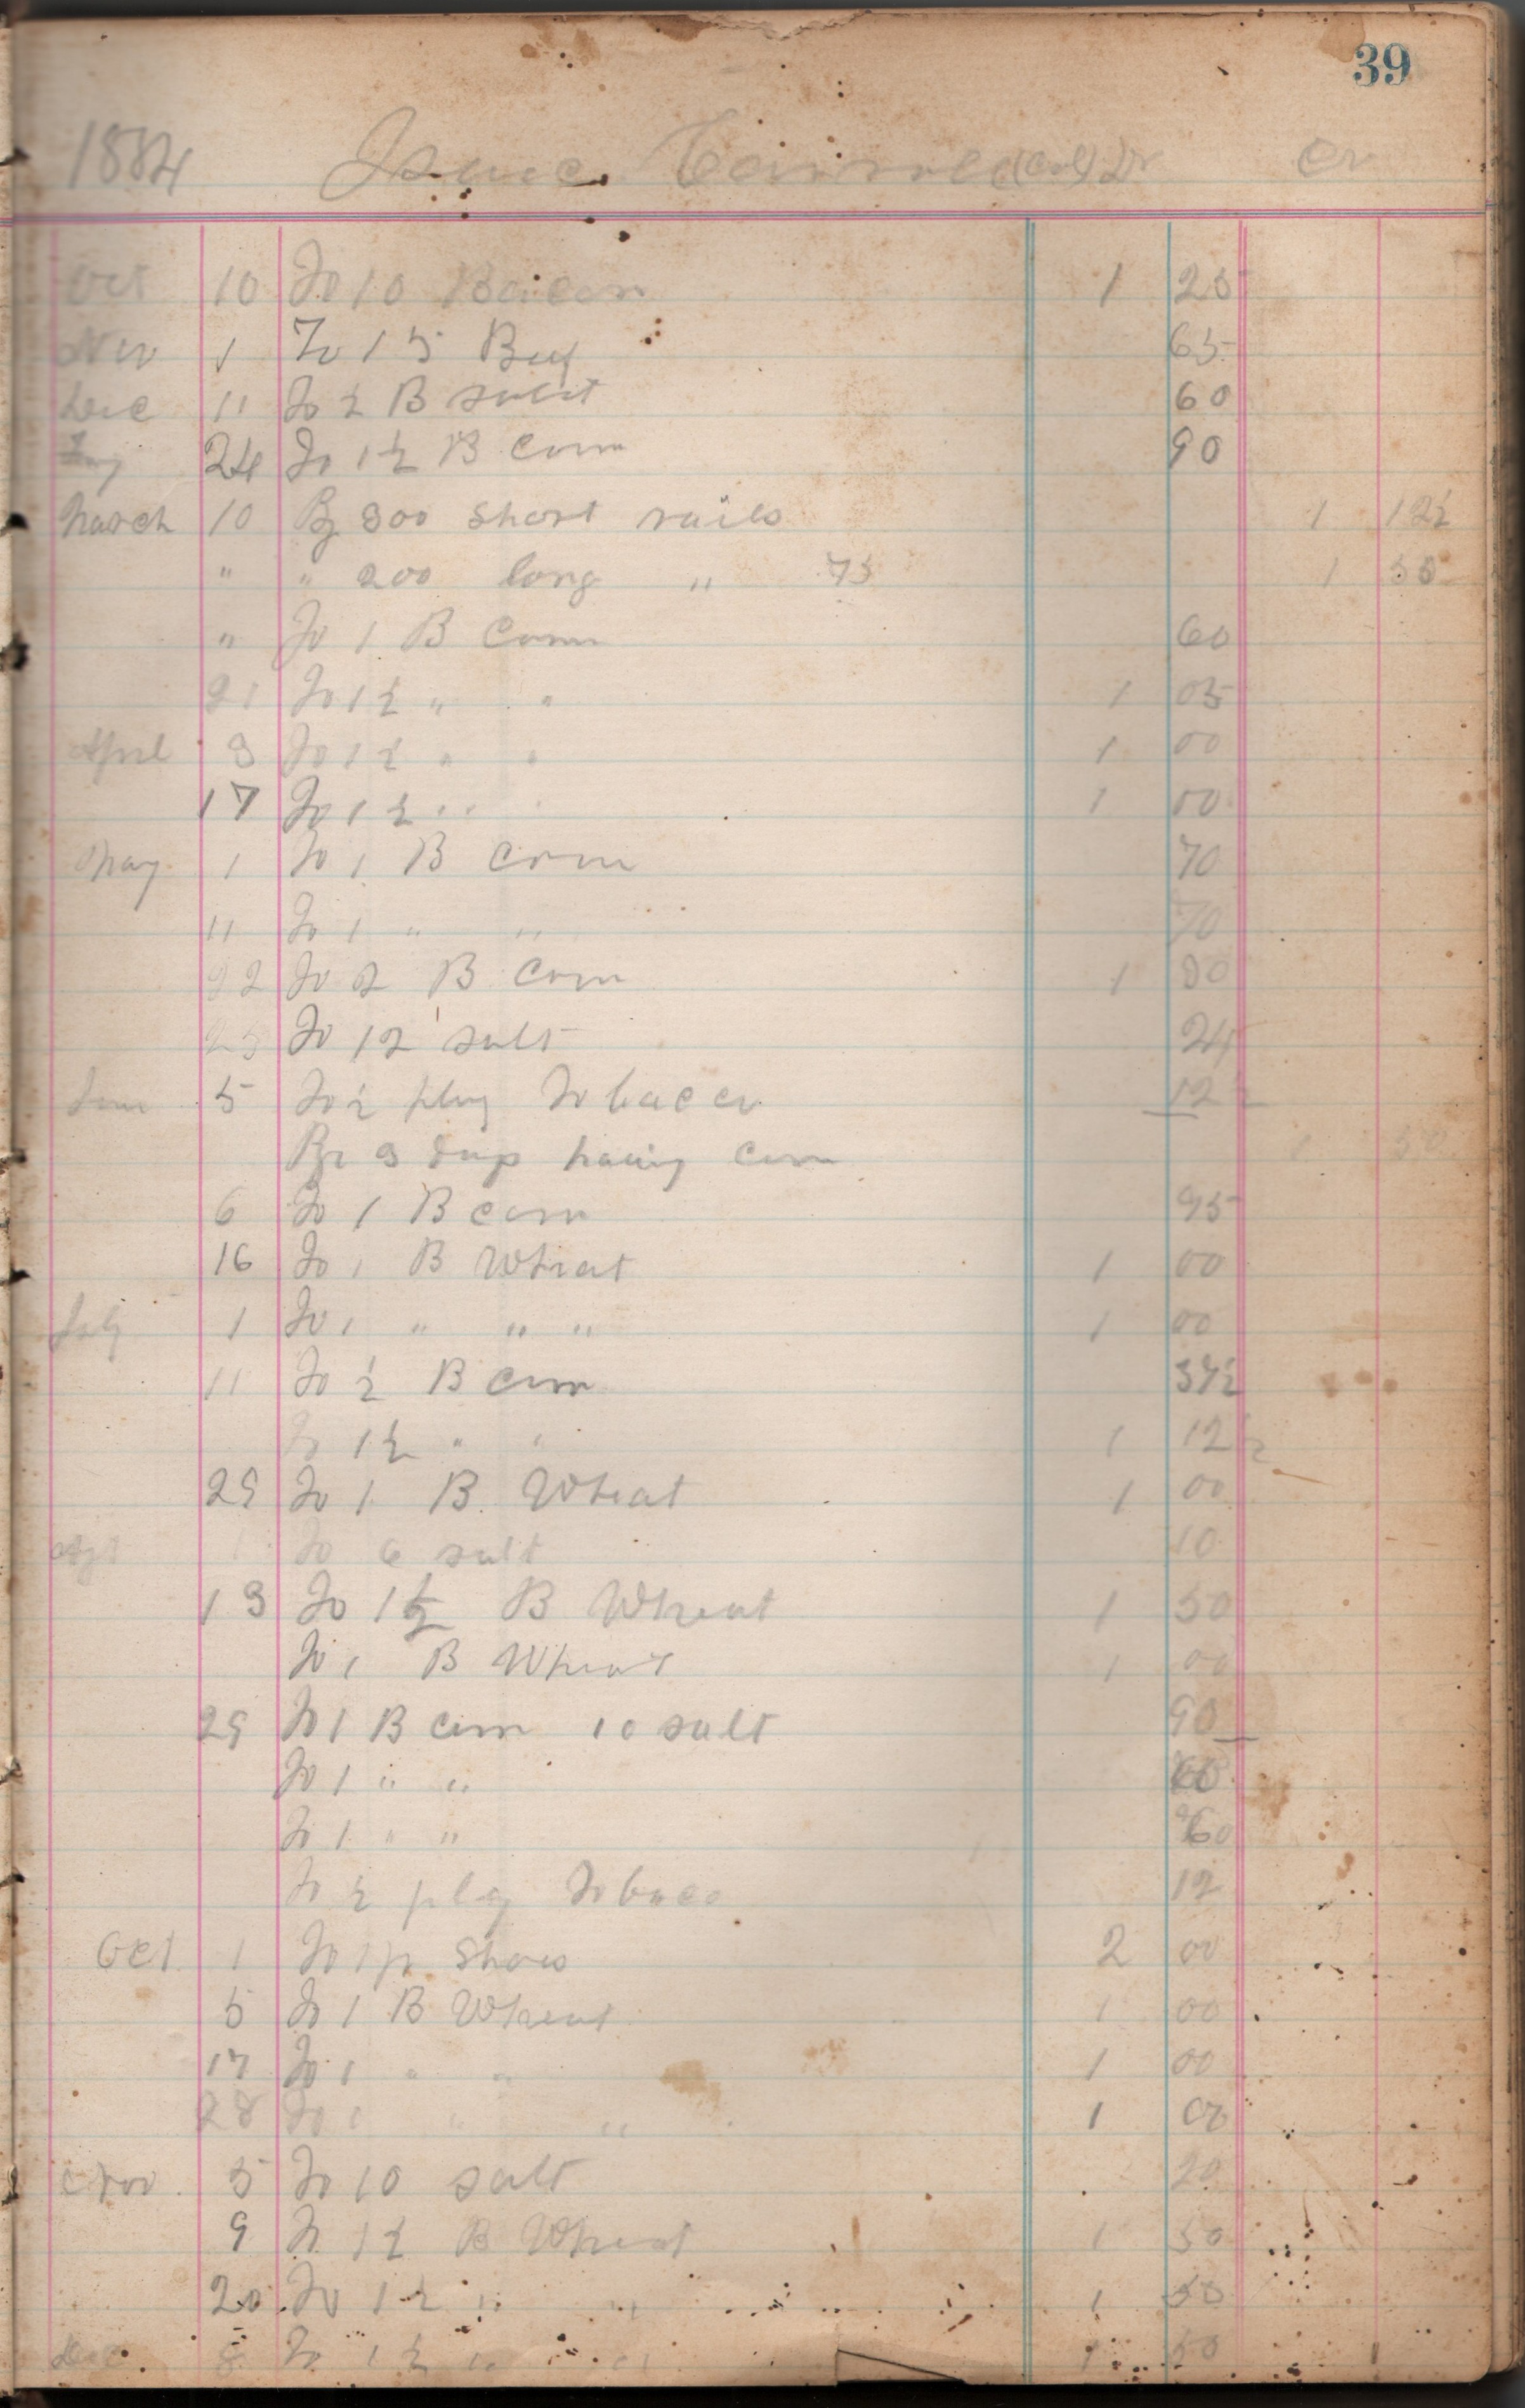 39
1884 Isaac (Col) Dr Cr
Oct 10 To 10 Bacon 1 25
Nov 1 To 15 Beef 65
Dec 11 To ½ B salt 60
24 To 1½ B Corn 90
March 10 By 300 short rails 1 12½
" " 200 long " 75 1 50
" To 1 B Corn 60
21 To 1½ " " 1 05
April 3 To 1½ " " 1 00
17 To 1½ " " 1 00
May 1 To 1 B Corn 70
11 To 1 " " 70
22 To 2 B Corn 1 80
25 To 12 salt 24
June 5 To ½ plug Tobacco 12½
By 3 days hoeing corn 1 50
6 To 1 B corn 95
16 To 1 B Wheat 1 00
July 1 To 1 " " " 1 00
11 To ½ B corn 37½
To 1½ " " 1 12½
29 To 1 B Wheat 1 00
Agt 1 To 6 salt 10
13 To 1½ B Wheat 1 50
To 1 B Wheat 1 00
29 To 1 B corn 10 salt 90
To 1 " " 60
To 1 " " 60
To ½ plg Tobaco 12
Oct 1 To 1 pr Shoes 2 00
5 To 1 B Wheat 1 00
17 To 1 " " 1 00
28 To 1 " " 1 00
Nov 5 To 10 salt 20
9 To 1½ B Wheat 1 50
20 To 1½ " " 1 50
Dec 8 To 1½ " " 1 50